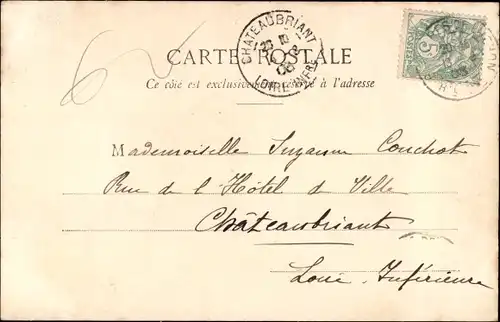 CARTE POSTALE
Ce côté est exclusivement réservé à l'adresse
CHATEAUBRIANT
LOIRE-INFRE
5
Mademoiselle Suzanne Couchot
Rue de l'Hôtel de Ville
Châteaubriant
Loire Inférieure